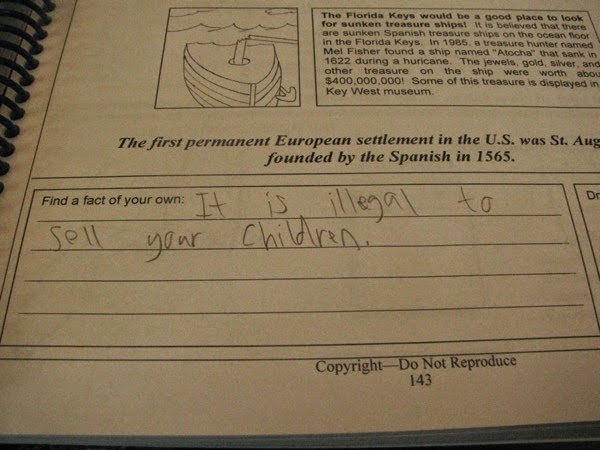 The Florida Keys would be a good place to look
for sunken treasure ships! It is believed that there
are sunken Spanish treasure ships on the ocean floor
in the Florida Keys. In 1985, a treasure hunter named
Mel Fisher found a ship named "Atocha" that sank in
1622 during a huricane. The jewels, gold, silver, and
other treasure on the ship were worth abou
$400,000,000! Some of this treasure is displayed in
Key West museum.
The first permanent European settlement in the U.S. was St. Aug
founded by the Spanish in 1565.
Find a fact of your own: It is illegal to
sell your children.
Dr
Copyright—Do Not Reproduce
143